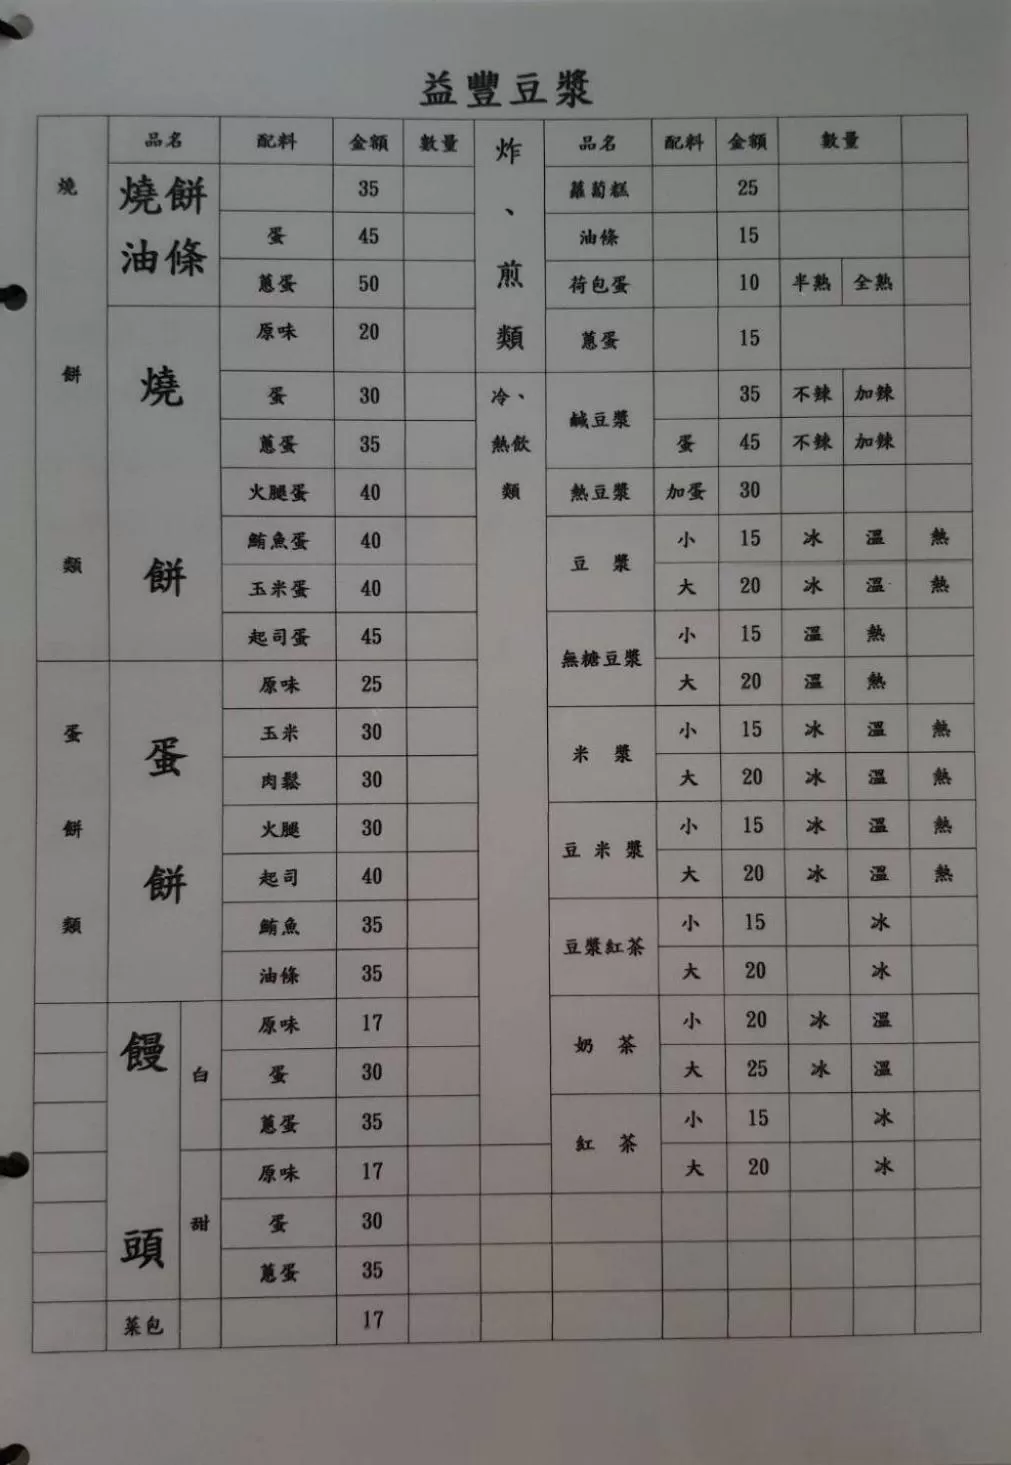 益豐豆漿
品名 配料 金額 數量
燒餅類
燒餅油條
35
蛋 45
蔥蛋 50
燒餅
原味 20
蛋 30
蔥蛋 35
火腿蛋 40
鮪魚蛋 40
玉米蛋 40
起司蛋 45
蛋餅類
蛋餅
原味 25
玉米 30
肉鬆 30
火腿 30
起司 40
鮪魚 35
油條 35
饅頭
白
原味 17
蛋 30
蔥蛋 35
甜
原味 17
蛋 30
蔥蛋 35
菜包 17
炸、煎類
品名 配料 金額 數量
蘿蔔糕 25
油條 15
荷包蛋 10 半熟 全熟
蔥蛋 15
冷、熱飲類
鹹豆漿
35 不辣 加辣
蛋 45 不辣 加辣
熱豆漿 加蛋 30
豆漿
小 15 冰 溫 熱
大 20 冰 溫 熱
無糖豆漿
小 15 溫 熱
大 20 溫 熱
米漿
小 15 冰 溫 熱
大 20 冰 溫 熱
豆米漿
小 15 冰 溫 熱
大 20 冰 溫 熱
豆漿紅茶
小 15 冰
大 20 冰
奶茶
小 20 冰 溫
大 25 冰 溫
紅茶
小 15 冰
大 20 冰